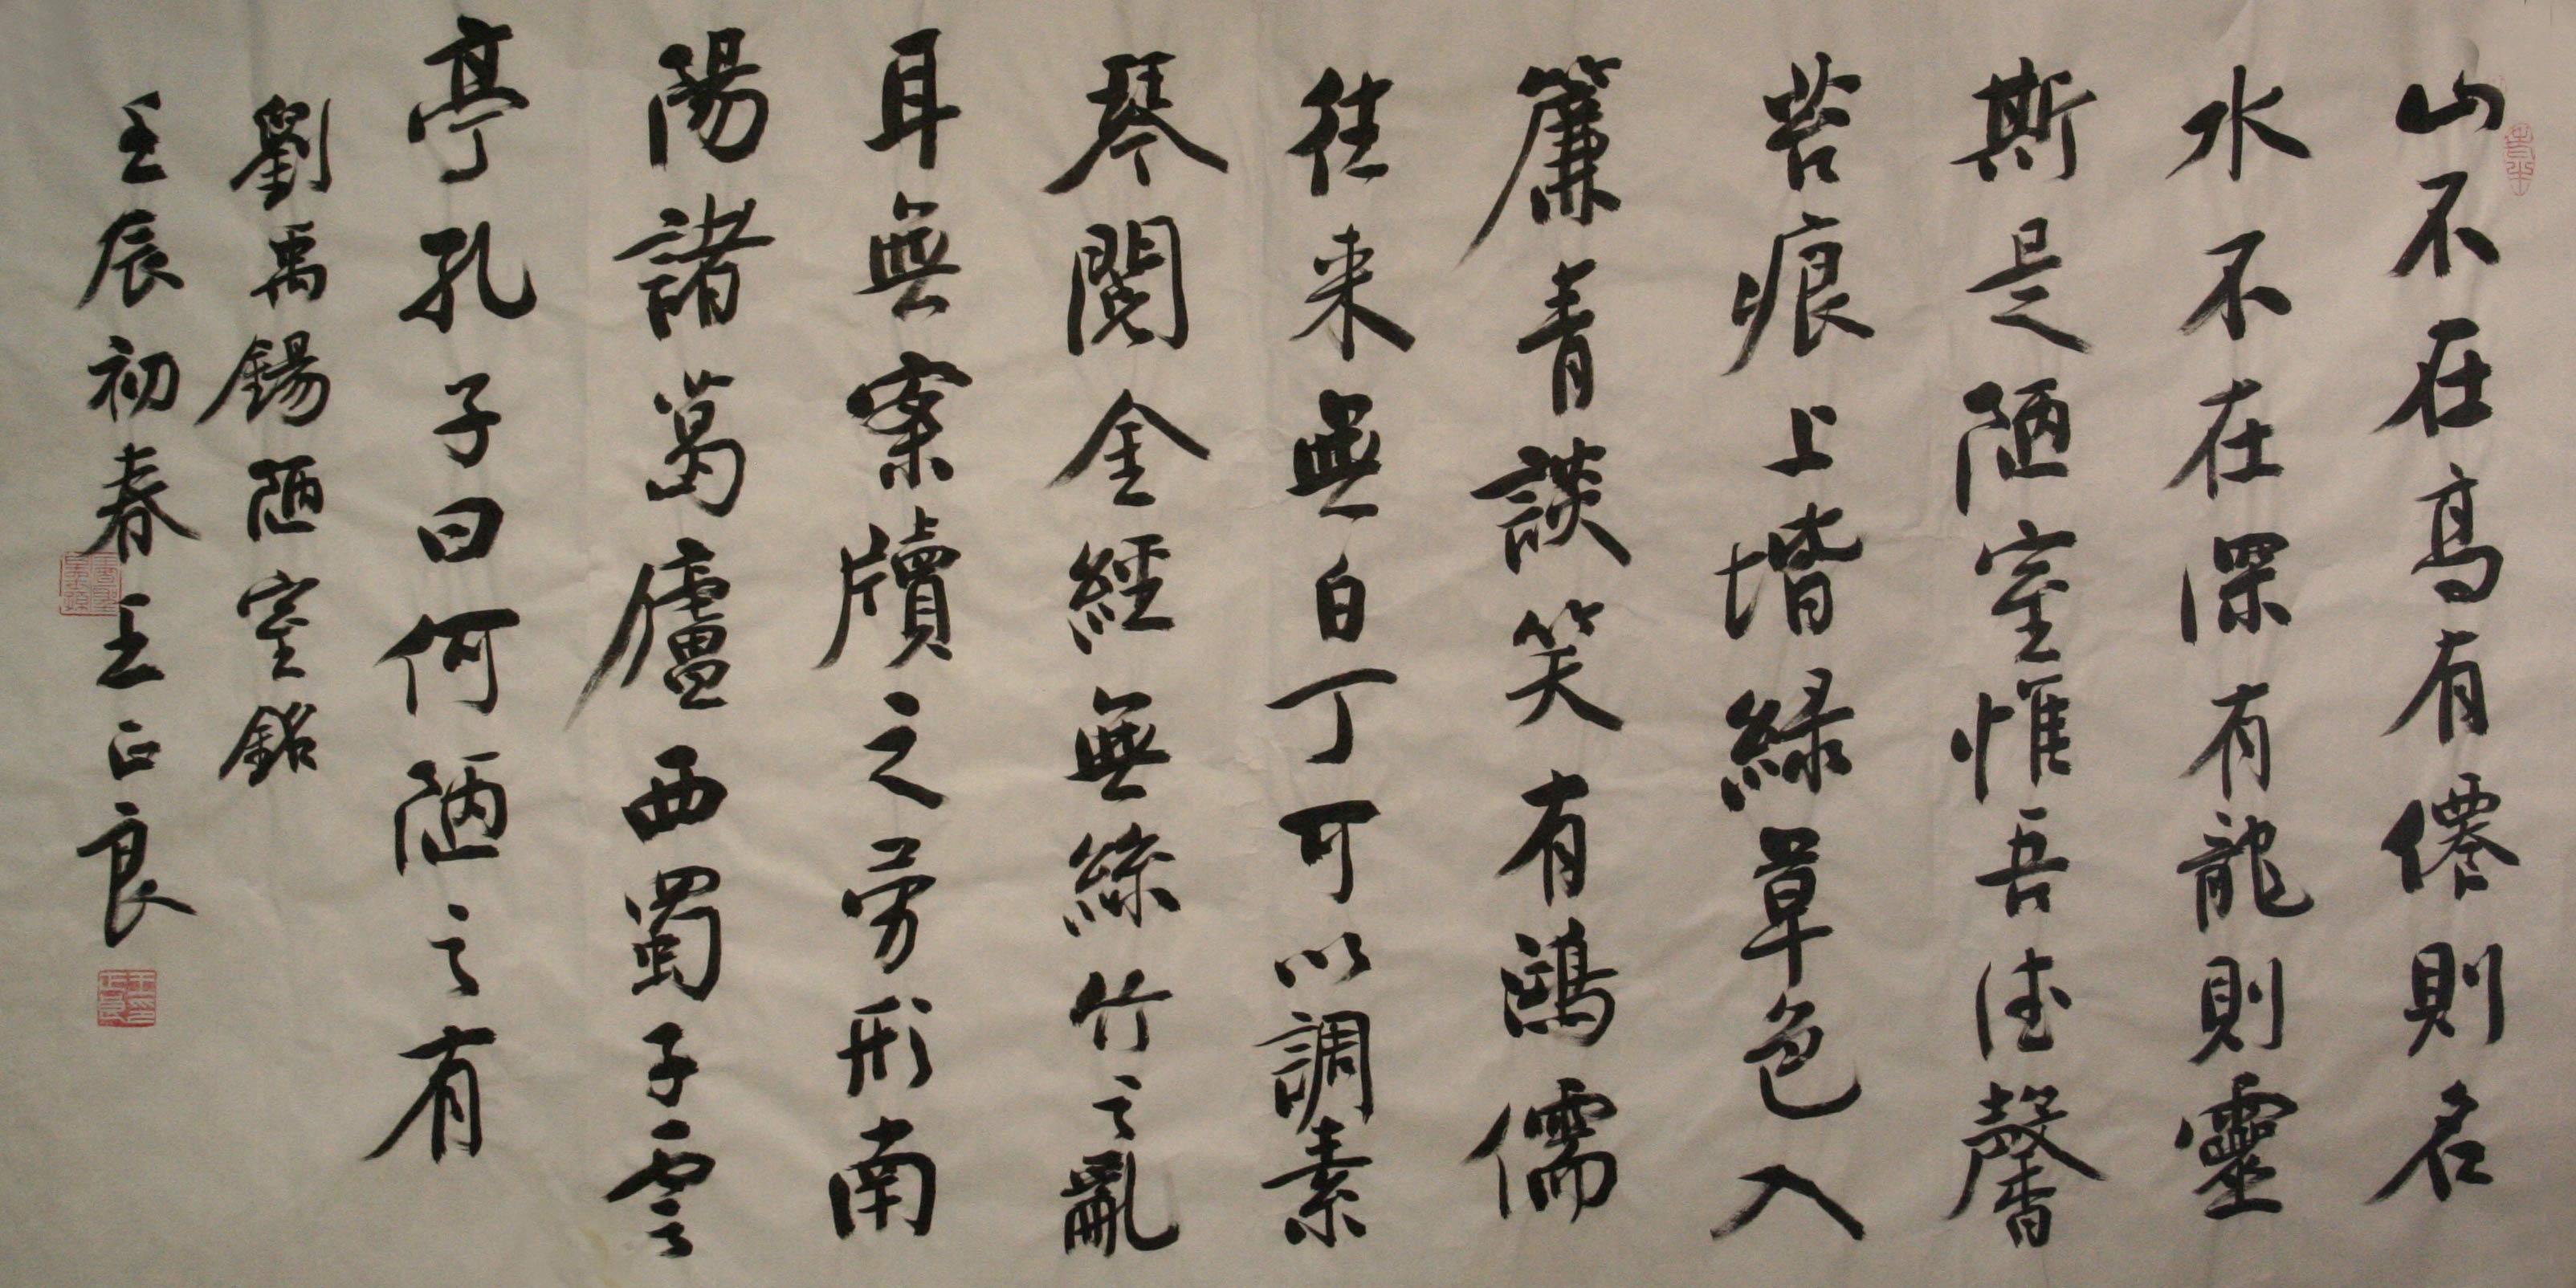 山不在高有僊則名
水不在深有龍則靈
斯是陋室惟吾德馨
苔痕上堦綠草色入
簾青談笑有鴻儒
往来無白丁可以調素
琴閱金經無絲竹之亂
耳無案牘之勞形南
陽諸葛廬西蜀子雲
亭孔子曰何陋之有
劉禹錫陋室銘
壬辰初春王正良